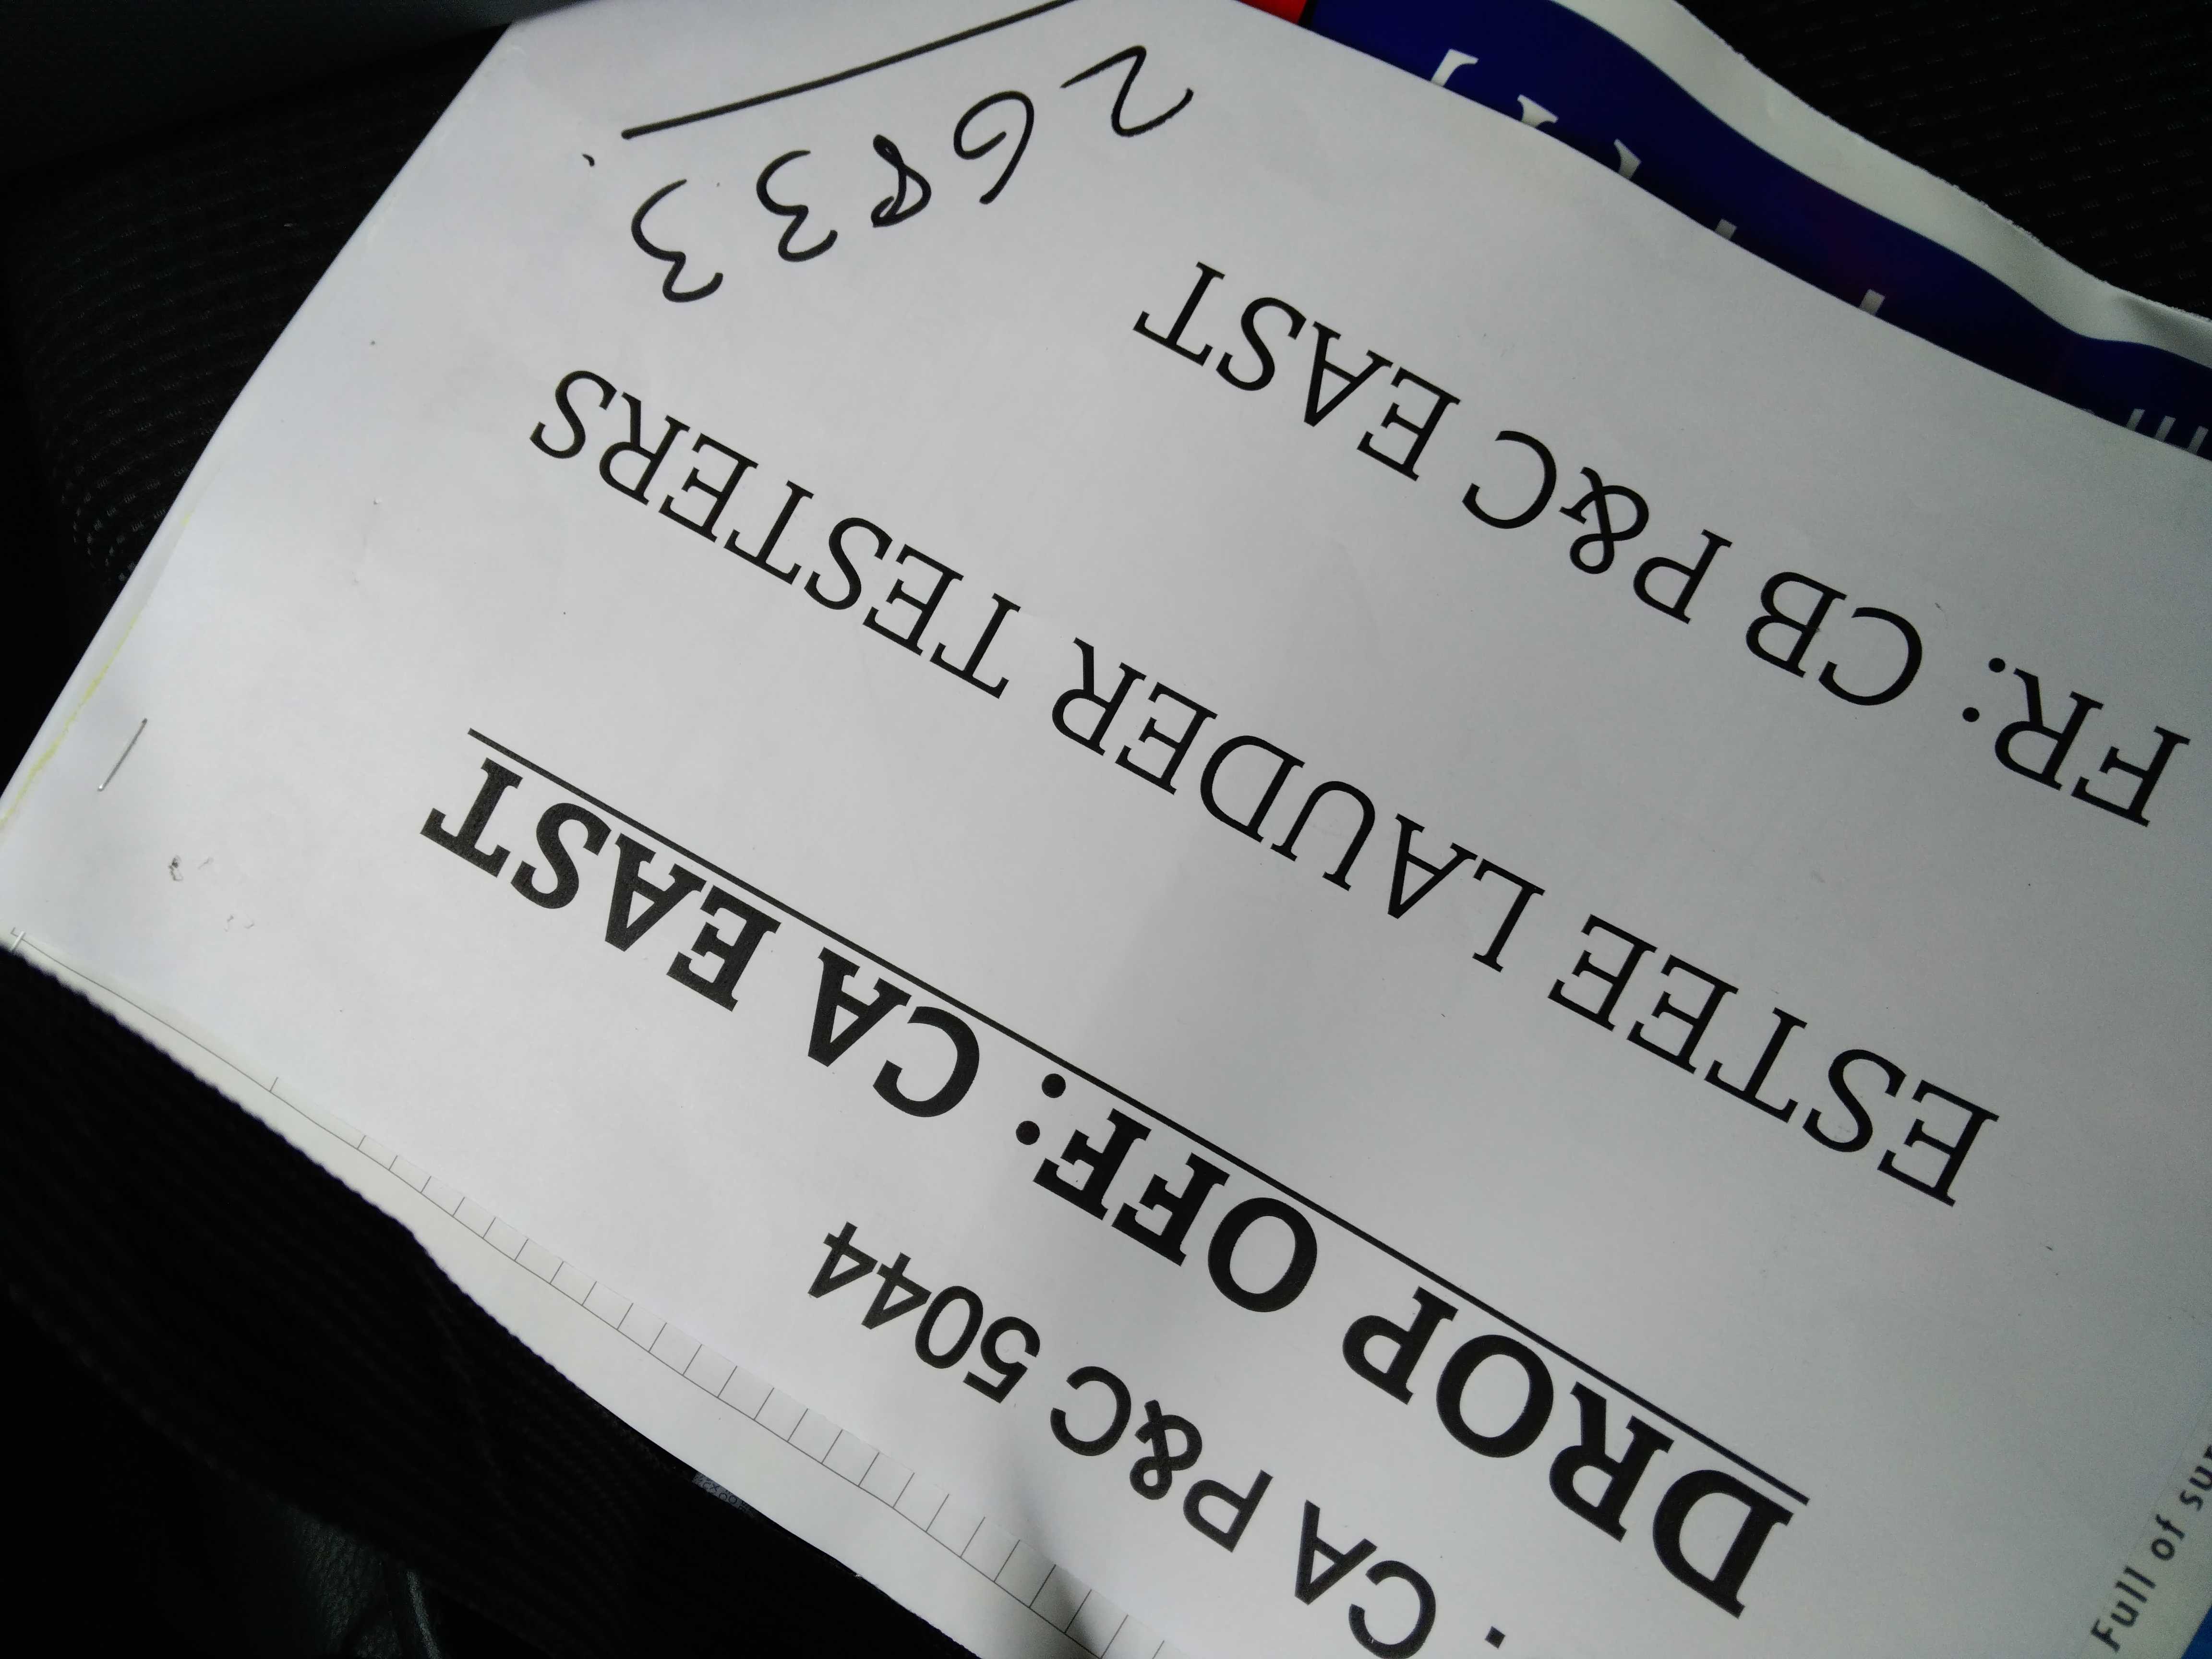 : CA P&C 5044
DROP OFF: CA EAST
ESTEE LAUDER TESTERS
FR: CB P&C EAST
26833
Full of